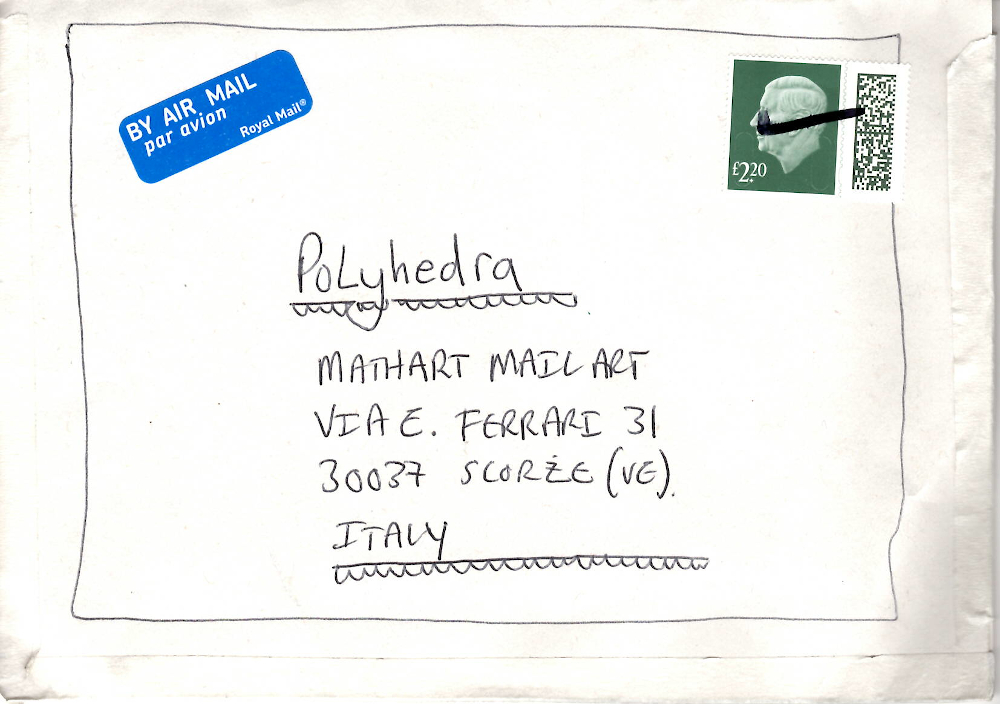 BY AIR MAIL
par avion
Royal Mail®
£2.20
PoLyhedra
MATHART MAIL ART
VIA E. FERRARI 31
30037 SCORŻE (VE).
ITALY